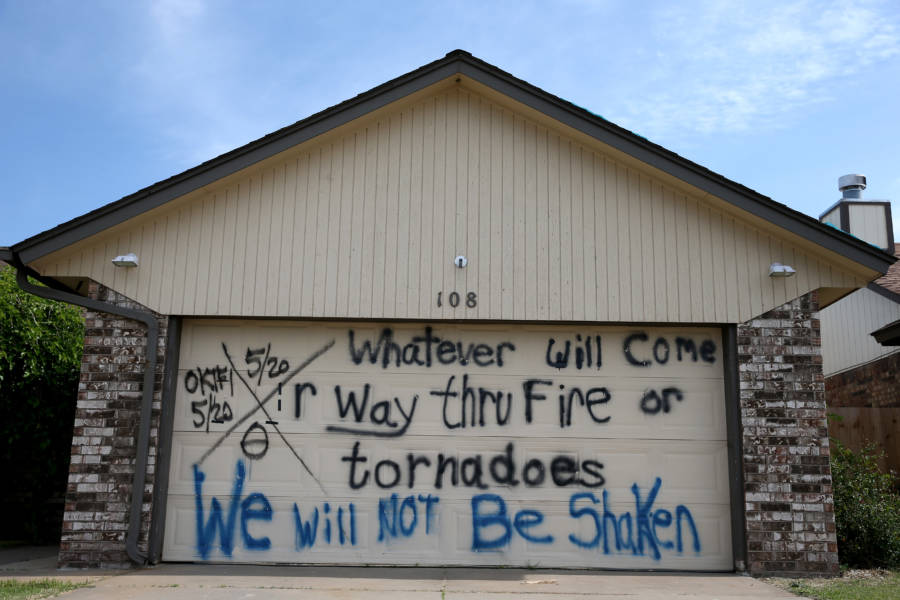 108
5/20
OKTF1
5/20
0
Whatever will Come
r Way thru Fire or
tornadoes
We Will NOT Be Shaken